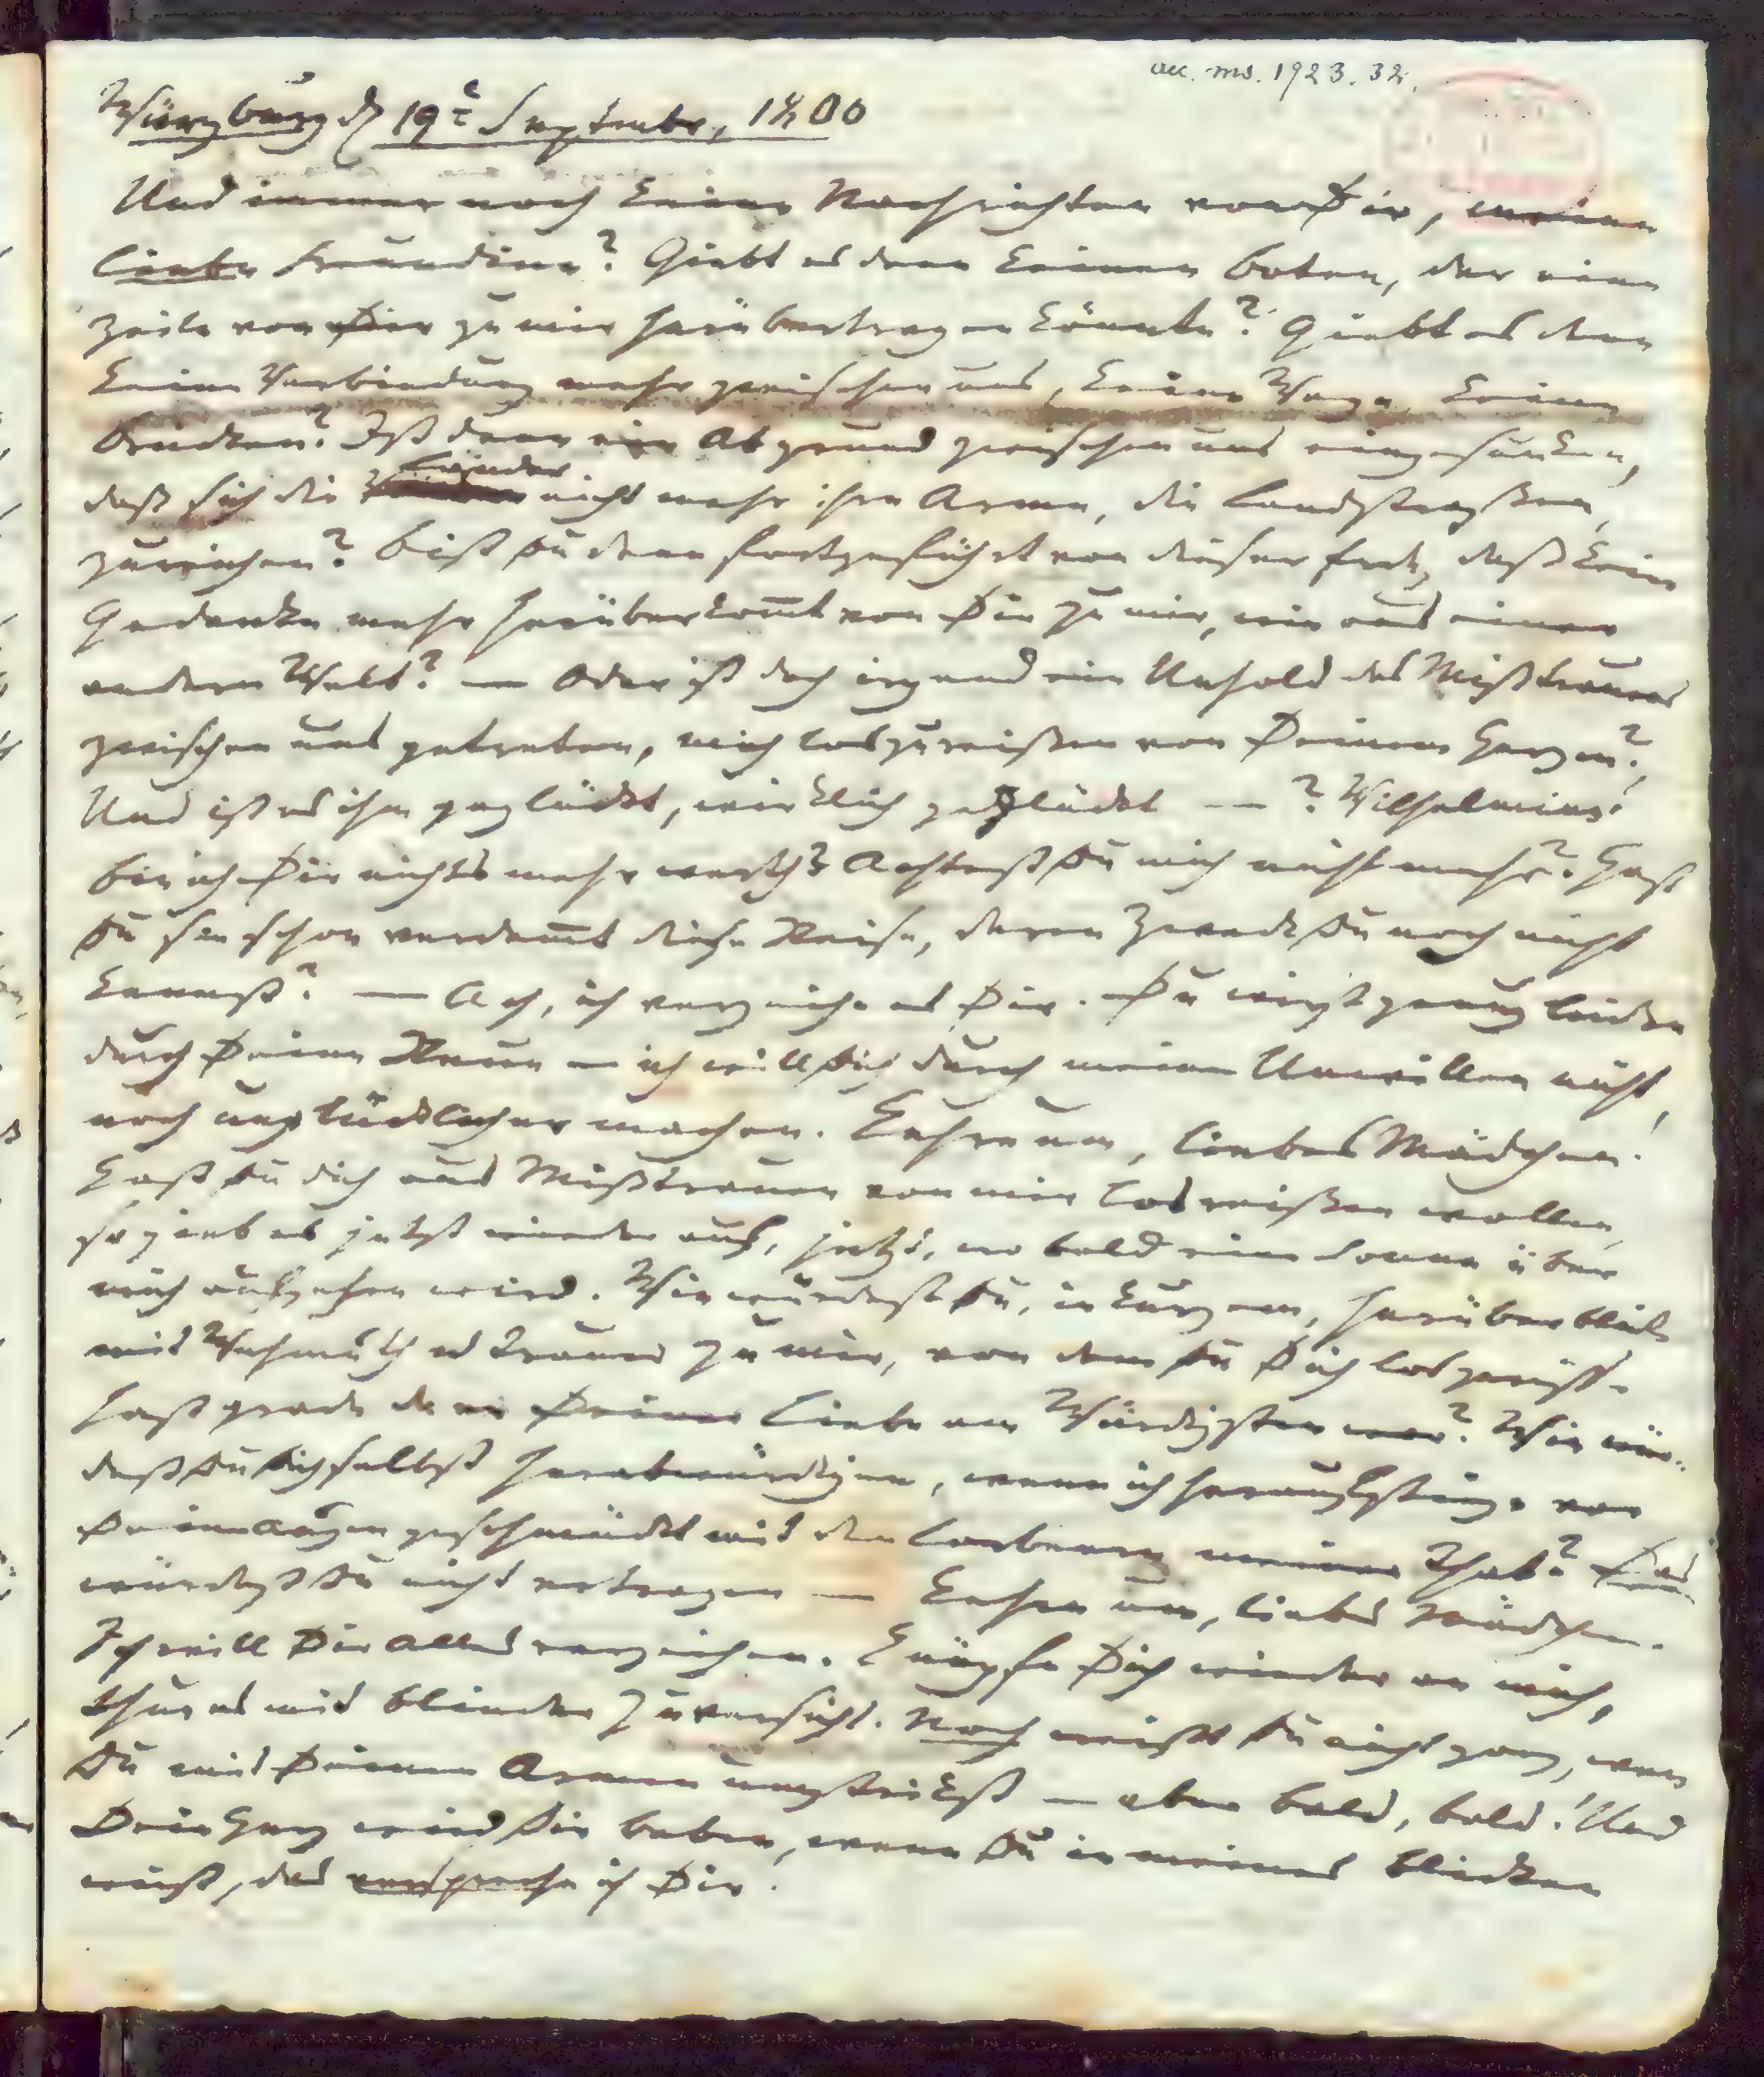 acc. ms. 1923. 32.
Würzburg d 19t Septembr, 1800
Und immer noch keine Nachrichten von Dir, meine
liebe Freundinn? Giebt es denn keinen Boten, der eine
Zeile von Dir zu mir herübertragen könnte? Giebt es denn
keine Verbindung mehr zwischen uns, keine Wege, keine
Brücken? Ist denn ein Abgrund zwischen uns eingesunken,
daß sich die Länder nicht mehr ihre Arme, die Landstraßen,
zureichen? Bist Du denn fortgeführt von dieser Erde, daß kein
Gedanke mehr herüberkom̄t von Dir zu mir, wie aus einer
andern Welt? — Oder ist doch irgend ein Unhold des Mißtrauens
zwischen uns getreten, mich loszureißen von Deinem Herzen?
Und ist es ihm geglückt, wirklich geglückt —? Wilhelmine!
Bin ich Dir nichts mehr werth? Achtest Du mich nicht mehr? Hast
Du sie schon verdam̄t diese Reise, deren Zweck Du noch nicht
kennst? — Ach, ich verzeihe es Dir. Du wirst genug leiden
durch Deine Reue — ich will Dich durch meinen Unwillen nicht
noch unglücklicher machen. Kehre um, liebes Mädchen!
Hast Du dich aus Mißtrauen von mir losreißen wollen,
so gieb es jetzt wieder auf, jetzt, wo bald eine Sonne über
mich aufgehen wird. Wie würdest Du, in Kurzem, herüberblicken
mit Wehmuth u Trauer zu mir, von dem Du Dich losgerissen
hast grade da er Deiner Liebe am Würdigsten war? Wie wür-
dest Du Dich selbst herabwürdigen, wenn ich heraufstiege vor
Deinen Augen geschmückt mit den Lorbeern meiner That? Das
würdest Du nicht ertragen — Kehre um, liebes Mädchen.
Ich will Dir Alles verzeihen. Knüpfe Dich wieder an mich,
thue es mit blinder Zuversicht. Noch weißt Du nicht ganz, wen
Du mit Deinen Armen umstrickst — aber bald, bald! Und
Dein Herz wird Dir beben, wenn Du in meines blicken
wirst, das verspreche ich Dir.